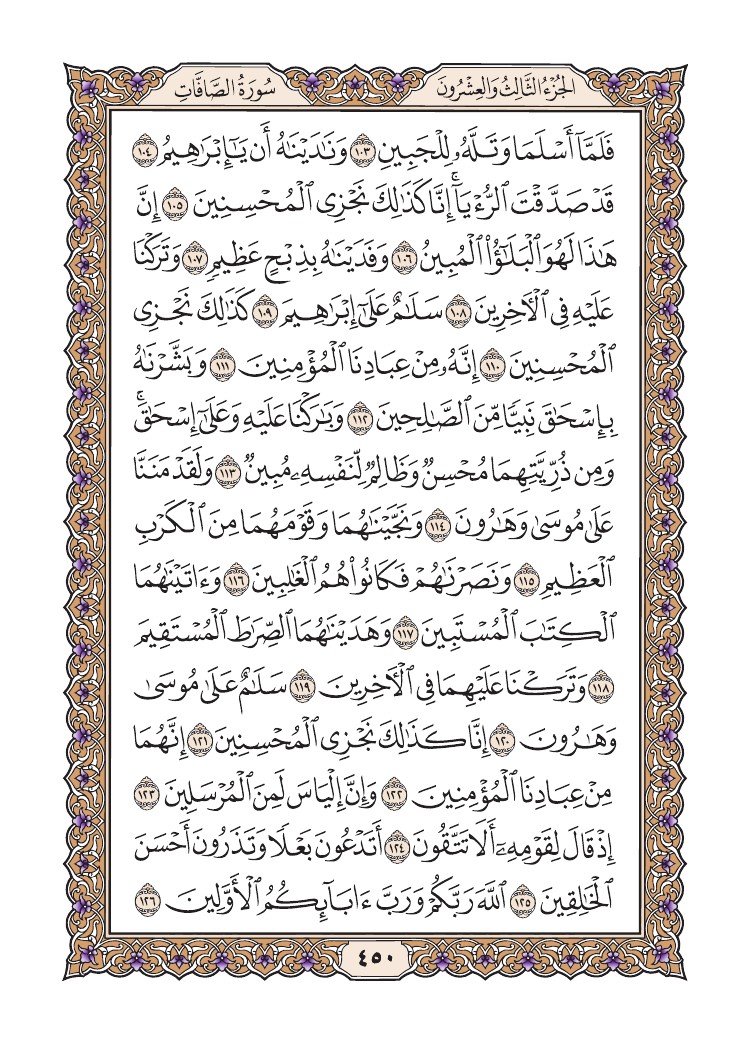 الجُزْءُ الثَّالِثُ وَالعِشْرُونَ
سُورَةُ الصَّافَّاتِ
فَلَمَّآ أَسْلَمَا وَتَلَّهُۥ لِلْجَبِينِ ١٠٣ وَنَٰدَيْنَٰهُ أَن يَٰٓإِبْرَٰهِيمُ ١٠٤
قَدْ صَدَّقْتَ ٱلرُّءْيَآۚ إِنَّا كَذَٰلِكَ نَجْزِى ٱلْمُحْسِنِينَ ١٠٥ إِنَّ
هَٰذَا لَهُوَ ٱلْبَلَٰٓؤُا۟ ٱلْمُبِينُ ١٠٦ وَفَدَيْنَٰهُ بِذِبْحٍ عَظِيمٍ ١٠٧ وَتَرَكْنَا
عَلَيْهِ فِى ٱلْأَخِرِينَ ١٠٨ سَلَٰمٌ عَلَىٰٓ إِبْرَٰهِيمَ ١٠٩ كَذَٰلِكَ نَجْزِى
ٱلْمُحْسِنِينَ ١١٠ إِنَّهُۥ مِنْ عِبَادِنَا ٱلْمُؤْمِنِينَ ١١١ وَبَشَّرْنَٰهُ
بِإِسْحَٰقَ نَبِيًّا مِّنَ ٱلصَّٰلِحِينَ ١١٢ وَبَٰرَكْنَا عَلَيْهِ وَعَلَىٰٓ إِسْحَٰقَۚ
وَمِن ذُرِّيَّتِهِمَا مُحْسِنٌ وَظَالِمٌ لِّنَفْسِهِۦ مُبِينٌ ١١٣ وَلَقَدْ مَنَنَّا
عَلَىٰ مُوسَىٰ وَهَٰرُونَ ١١٤ وَنَجَّيْنَٰهُمَا وَقَوْمَهُمَا مِنَ ٱلْكَرْبِ
ٱلْعَظِيمِ ١١٥ وَنَصَرْنَٰهُمْ فَكَانُوا۟ هُمُ ٱلْغَٰلِبِينَ ١١٦ وَءَاتَيْنَٰهُمَا
ٱلْكِتَٰبَ ٱلْمُسْتَبِينَ ١١٧ وَهَدَيْنَٰهُمَا ٱلصِّرَٰطَ ٱلْمُسْتَقِيمَ
١١٨ وَتَرَكْنَا عَلَيْهِمَا فِى ٱلْأَخِرِينَ ١١٩ سَلَٰمٌ عَلَىٰ مُوسَىٰ
وَهَٰرُونَ ١٢٠ إِنَّا كَذَٰلِكَ نَجْزِى ٱلْمُحْسِنِينَ ١٢١ إِنَّهُمَا
مِنْ عِبَادِنَا ٱلْمُؤْمِنِينَ ١٢٢ وَإِنَّ إِلْيَاسَ لَمِنَ ٱلْمُرْسَلِينَ ١٢٣
إِذْ قَالَ لِقَوْمِهِۦٓ أَلَا تَتَّقُونَ ١٢٤ أَتَدْعُونَ بَعْلًا وَتَذَرُونَ أَحْسَنَ
ٱلْخَٰلِقِينَ ١٢٥ ٱللَّهَ رَبَّكُمْ وَرَبَّ ءَابَآئِكُمُ ٱلْأَوَّلِينَ ١٢٦
٤٥٠